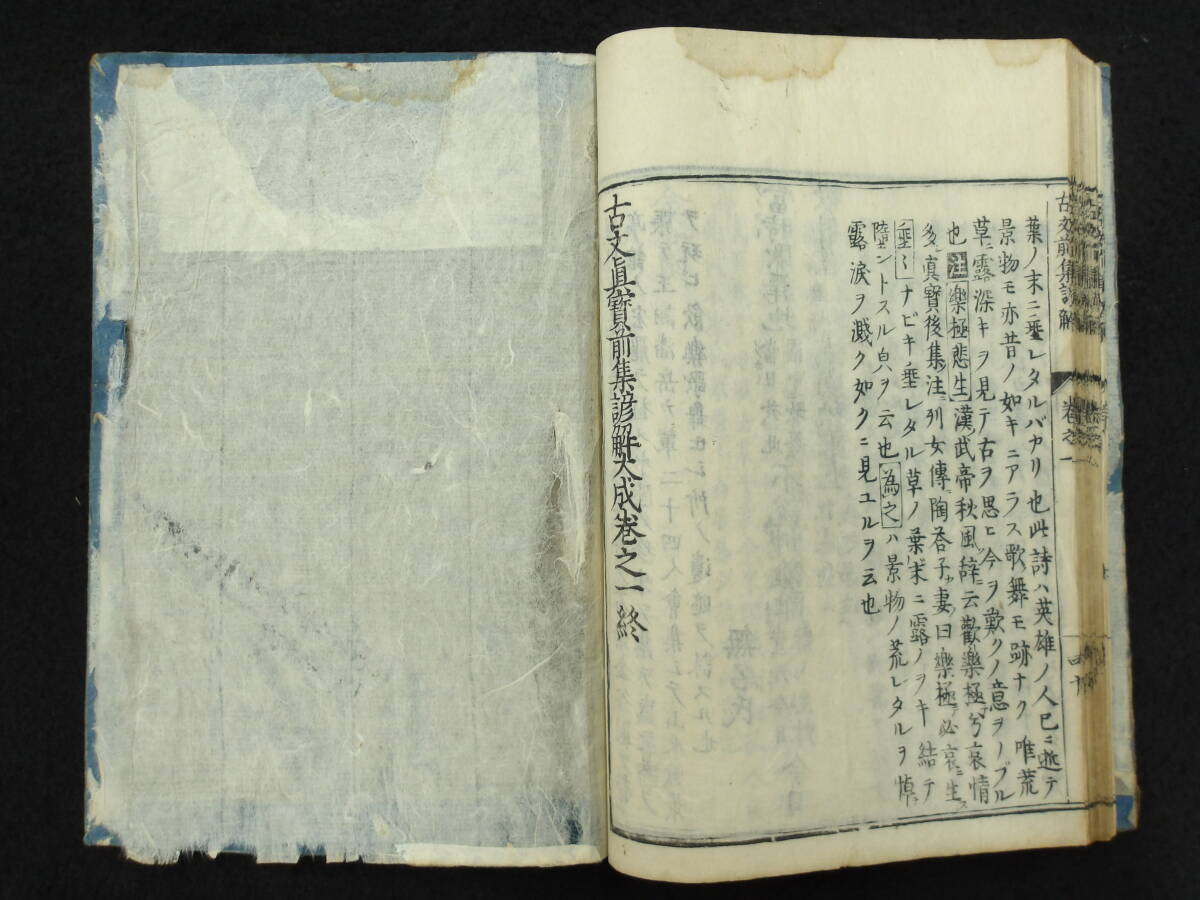 古文前集諺解 卷之一 四十
葉ノ末ニ埀レタルバカリ也此詩ハ英雄ノ人已ニ逝テ
景物モ亦昔ノ如キニアラス歌舞モ跡ナク唯荒
草ニ露深キヲ見テ古ヲ思ヒ今ヲ歎クノ意ヲノブル
也注樂極悲生漢武帝秋風辞云歡樂極兮哀情
多シ真寳後集注列女傳陶荅子妻曰樂極必哀生
埀〻ナビキ埀レタル草ノ葉末ニ露ノヲキ結テ
墮ントスル皃ヲ云也為之ハ景物ノ荒レタルヲ悼
露涙ヲ濺ク如クニ見ユルヲ云也
古文眞寳前集諺解大成卷之一終